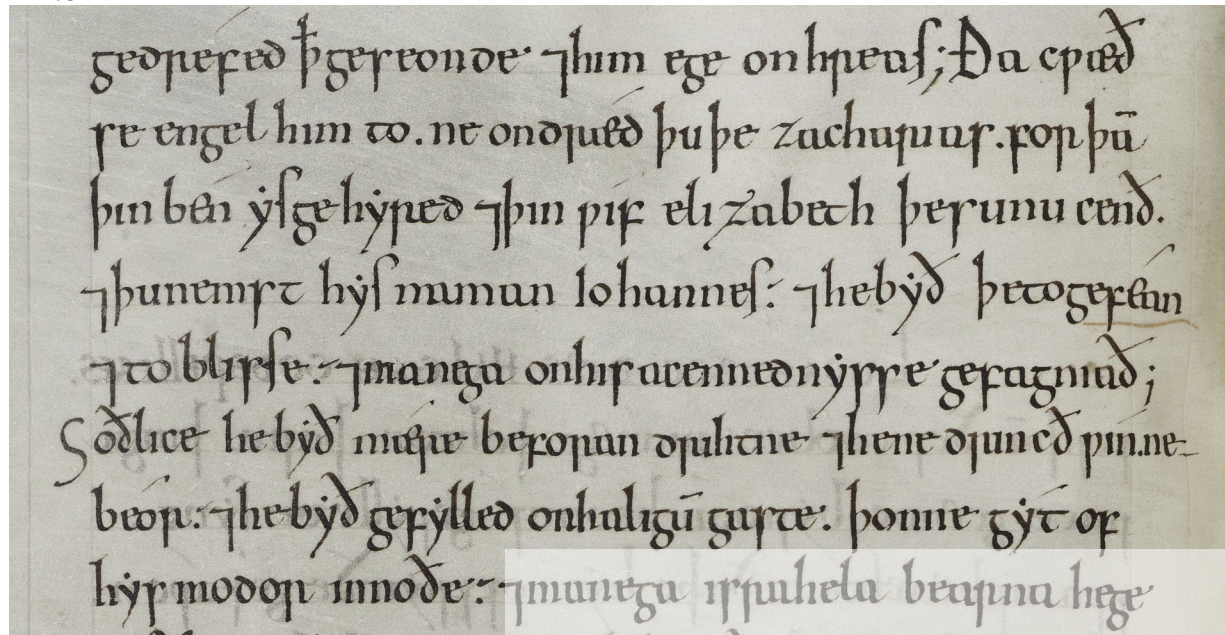 gedrefed ꝥ geseonde ⁊ him ege onhreas; Ða cƿæð
se engel him to. ne ondræd þu þe zacharias. forþā
þin bén ẏs gehẏred ⁊ þin ƿif elizabeth þe sunu cenð.
⁊ þu nemst hẏs naman Iohannes: ⁊ he bẏð þe to geféan
⁊ to blisse: ⁊ manega on his acennednẏsse gefagniað;
Soðlice he bẏð mære beforan drihtne ⁊ he ne drincð ƿin. ne
béor: ⁊ he bẏð gefẏlled on haligū gaste. þonne gẏt of
hẏs modor innoðe: ⁊ manega israhela bearna he ge